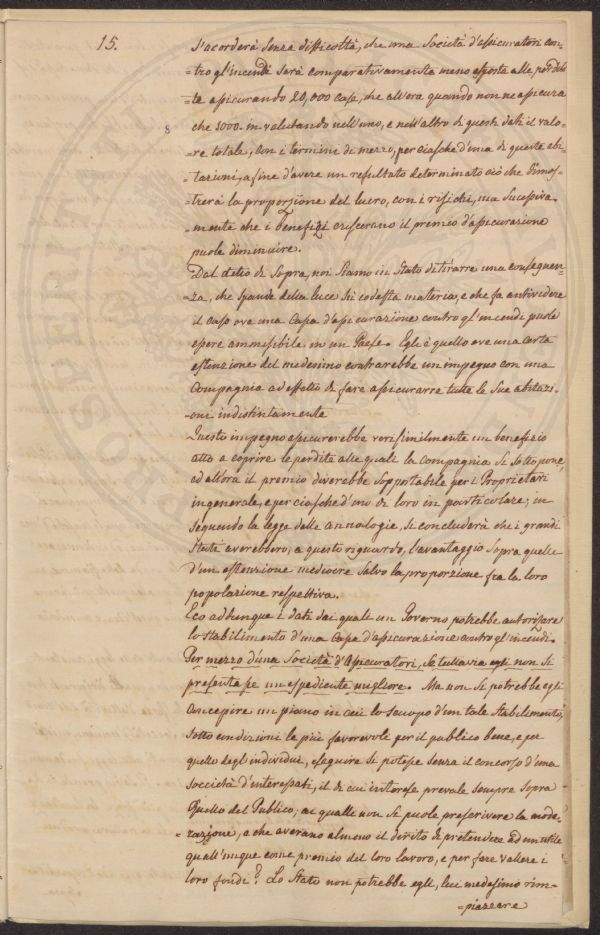 15.
s'acorderà senza difficoltà, che una Società d'assicuratori con-
=tro gl'incendi sarà comparativamente meno esposta alle perdite
assicurando 20,000 case, che allora quando non ne assicura
8
che 5000. in valutando nell'uno, e nell'altro di questi dati il valo-
=re totale, con i termini di mezzo, per ciasche d'una di queste abi-
=tazioni, a fine d'avere un resultato determinato ciò che dimos-
=trerà la proporzione del lucro, con i rischi, ma sucessiva-
=mente che i benefizi cresceranno il premio d'assicurazione
puole diminuire.
Dal detto di sopra, noi siamo in stato di tirarre una conseguen-
=za, che spande della luce su codesta materia, e che fa antividere
il caso ove una Casa d'assicurazione contro gl'incendi puole
essere ammessibile in un Paese. Egli è quello ove una certa
estenzione del medesimo contrarebbe un impegno con una
Compagnia ad effetto di fare assicurarre tutte le sue abitazi-
=oni indistintamente
Questo impegno assicurerebbe verisimilmente un benefizio
atto a coprire le perdite alle quali la Compagnia si sottopone,
ed allora il premio diverebbe sopportabile per i Proprietari
in generale, e per ciasche d'uno di loro in particolare; in
seguendo la legge delle annologie, si concluderà che i grandi
Stati averebbero, a questo riguardo, l'avantaggio sopra quelle
d'un estenzione mediocre salvo la proporzione fra la loro
popolazione respettiva.
Eco adunque i dati dai quali un Governo potrebbe autorizare
lo stabilimento d'una Casa d'assicurazione contro gl'incendi.
Per mezzo d'una Società d'Assicuratori, se tuttavia egli non si
presentasse un espediente migliore. Ma non si potrebbe egli
concepire un piano in cui lo scuopo d'un tale stabilimento,
sotto condizioni le più favorevoli per il publico bene, e per
quello degl'individui, eseguire si potesse senza il concorso d'una
soccietà d'interessati, il di cui interesse prevale sempre sopra
quello del Publico; ai qualli non si puole prescrivere la mode-
=razzione, e che averano almeno il dirito di pretendere ad un utile
quall'unque come premio del loro lavoro, e per fare vallere i
loro fondi? Lo Stato non potrebbe egli, lui medesimo rim-
=piazzare